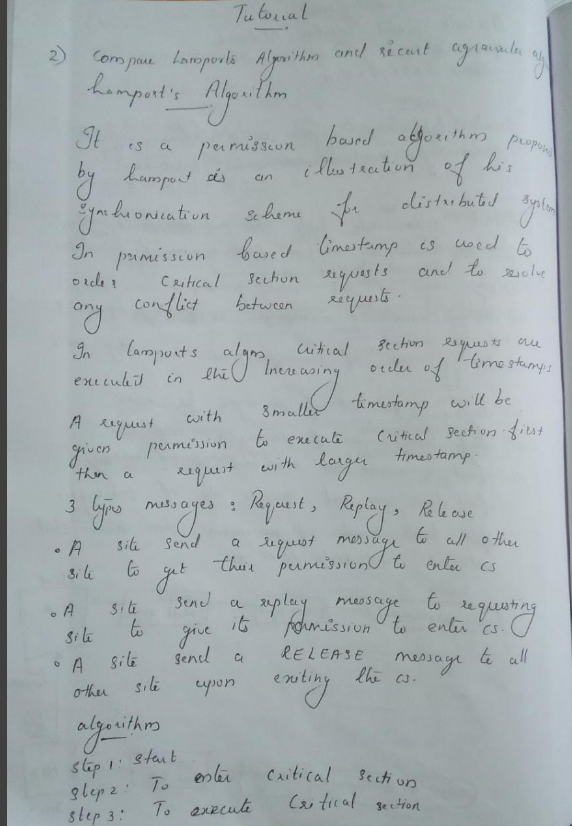 Tutorial
2) Compare Lamport's Algorithm and ricart agrawala alg
Lamport's Algorithm
It is a permission based algorithm propose
by Lamport as an illustration of his
synchronication scheme for distributed system
In prmission based timestamp is used to
order critical section requests and to resolve
any conflict between requests.
In Lamports algm critical section requests are
executed in the Increasing order of timestamps
A request with smaller timestamp will be
given permission to execute critical section first
then a request with larger timestamp.
3 types messages : Request, Replay, Release
• A site send a request message to all other
site to get their permission to enter cs
• A site send a replay message to requesting
site to give its permission to enter cs.
• A site send a RELEASE message to all
other site upon exiting the cs.
algorithm
Step 1: Start
Step 2: To enter critical section
Step 3: To execute Critical section